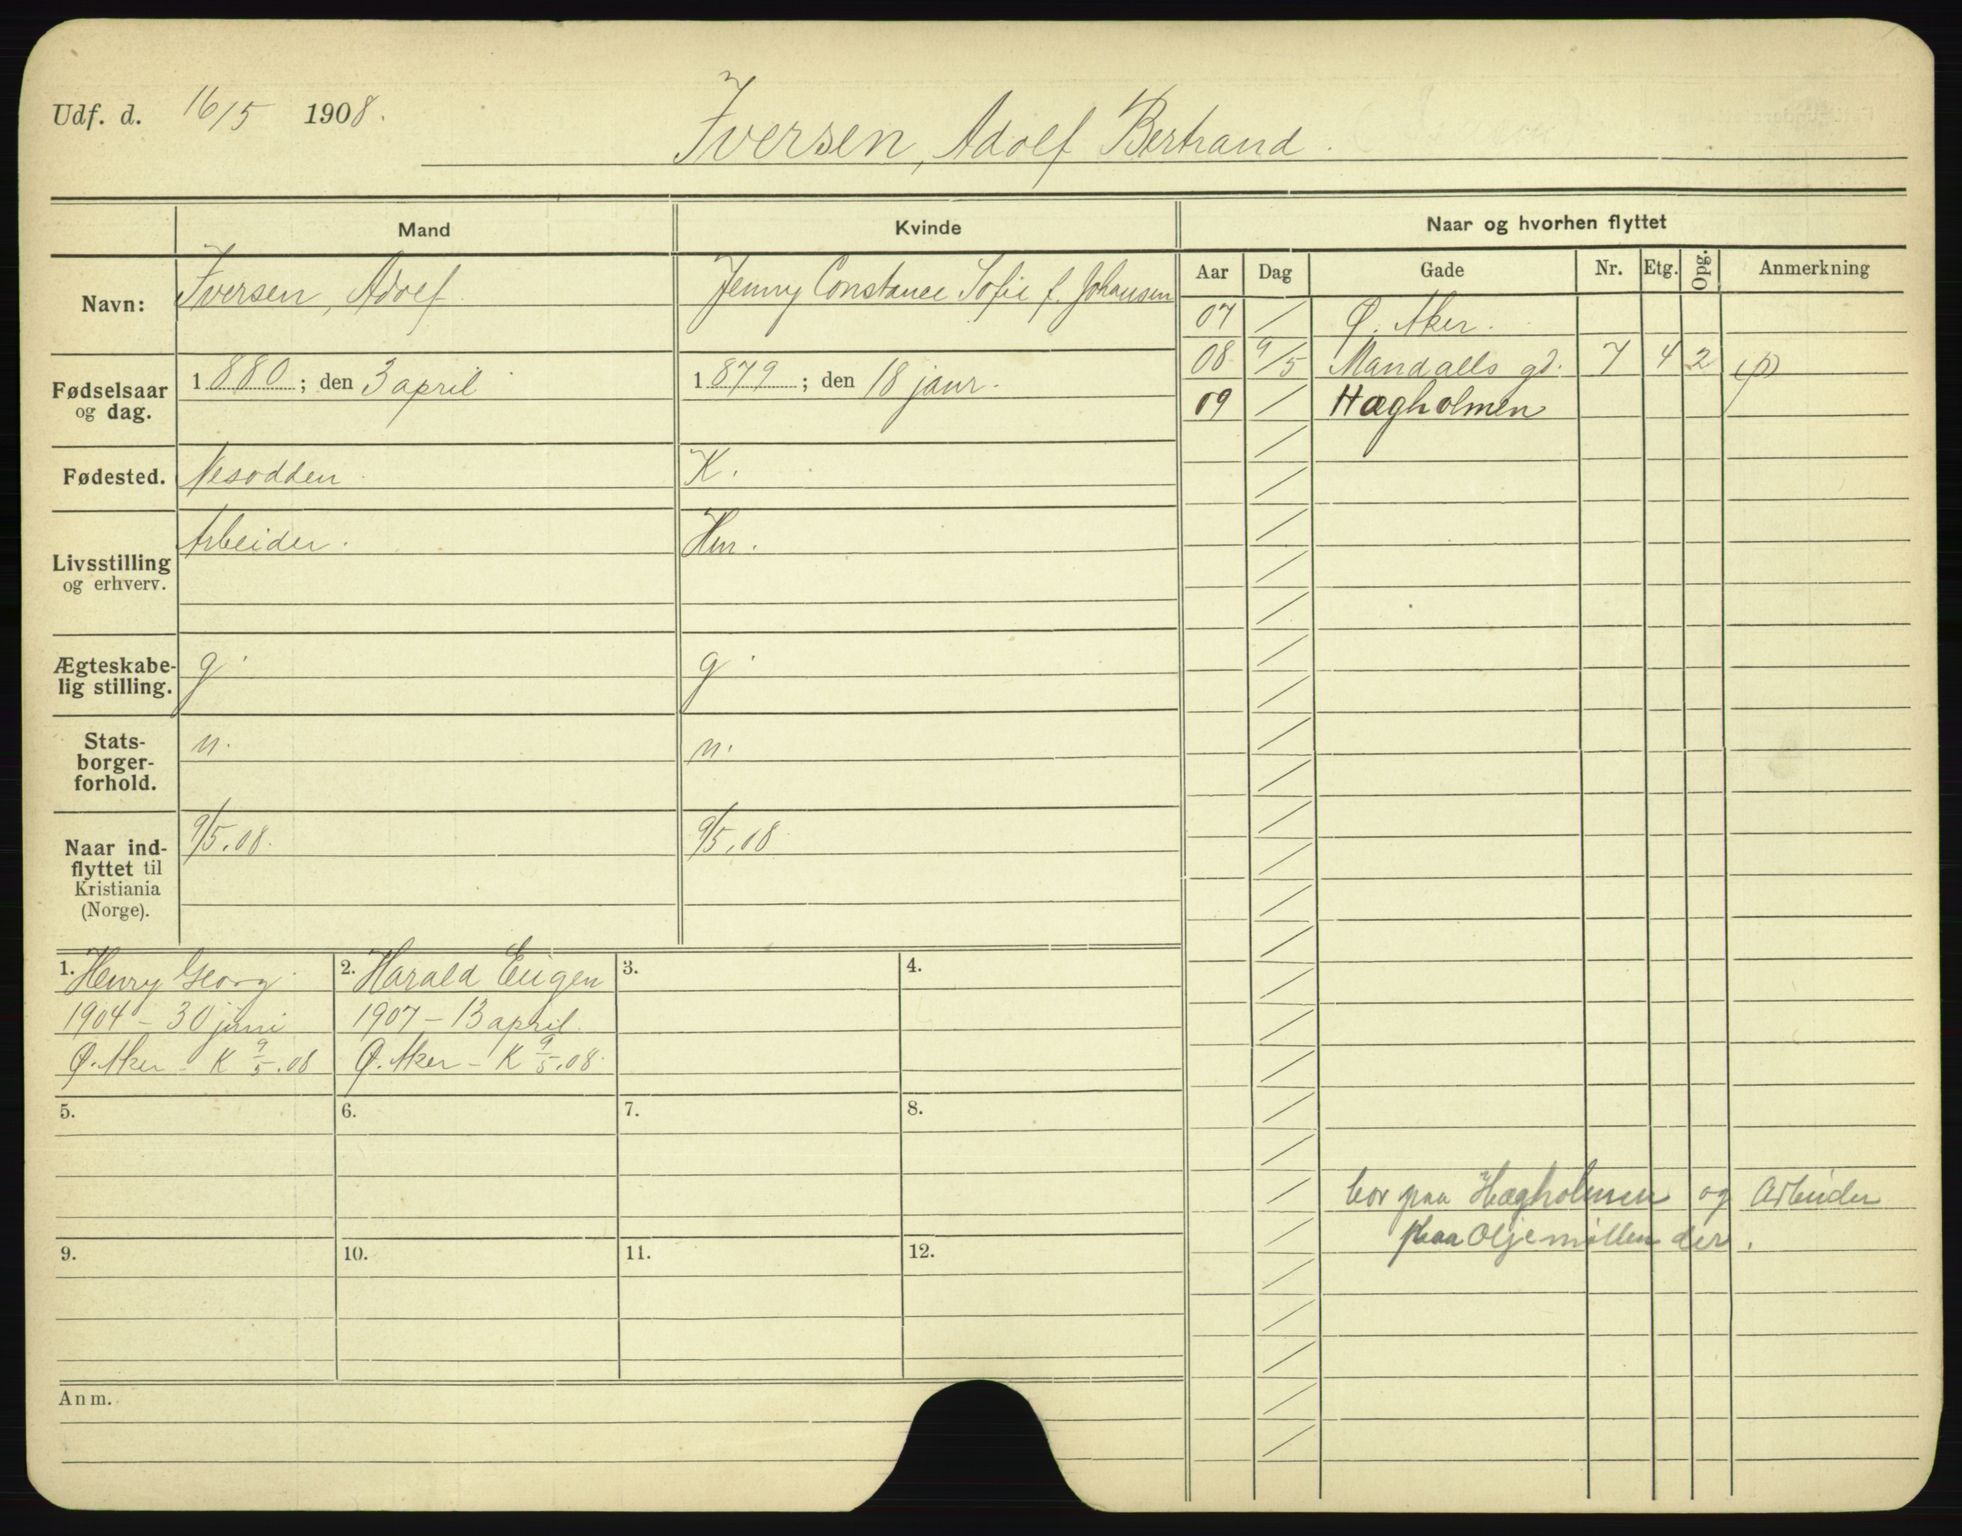 Udf. d. 16/5 1908.
Iversen, Adolf Bertrand.
Mand
Kvinde
Naar og hvorhen flyttet
Aar Dag Gade Nr. Etg. Opg. Anmerkning
Navn: Iversen, Adolf Jenny Constance Sofie f. Johansen
07 / Ø. Aker.
08 9/5 Mandalls gd. 7 4 2
09 / Hægholmen
Fødselsaar og dag. 1880; den 3 april 1879; den 18 janr.
Fødested. Nesodden. K.
Livsstilling og erhverv. Arbeider. Hm.
Ægteskabe-
lig stilling. g. g.
Stats-
borger-
forhold. n. n.
Naar ind-
flyttet til
Kristiania
(Norge). 9/5.08. 9/5.08
1. Henry Georg
1904 - 30 juni
Ø. Aker - K 9/5.08
2. Harald Eugen
1907 - 13 april
Ø. Aker - K 9/5.08.
3.
4.
5.
6.
7.
8.
9.
10.
11.
12.
bor paa Hægholmen og Arbeider
paa Oljemøllen der.
Anm.